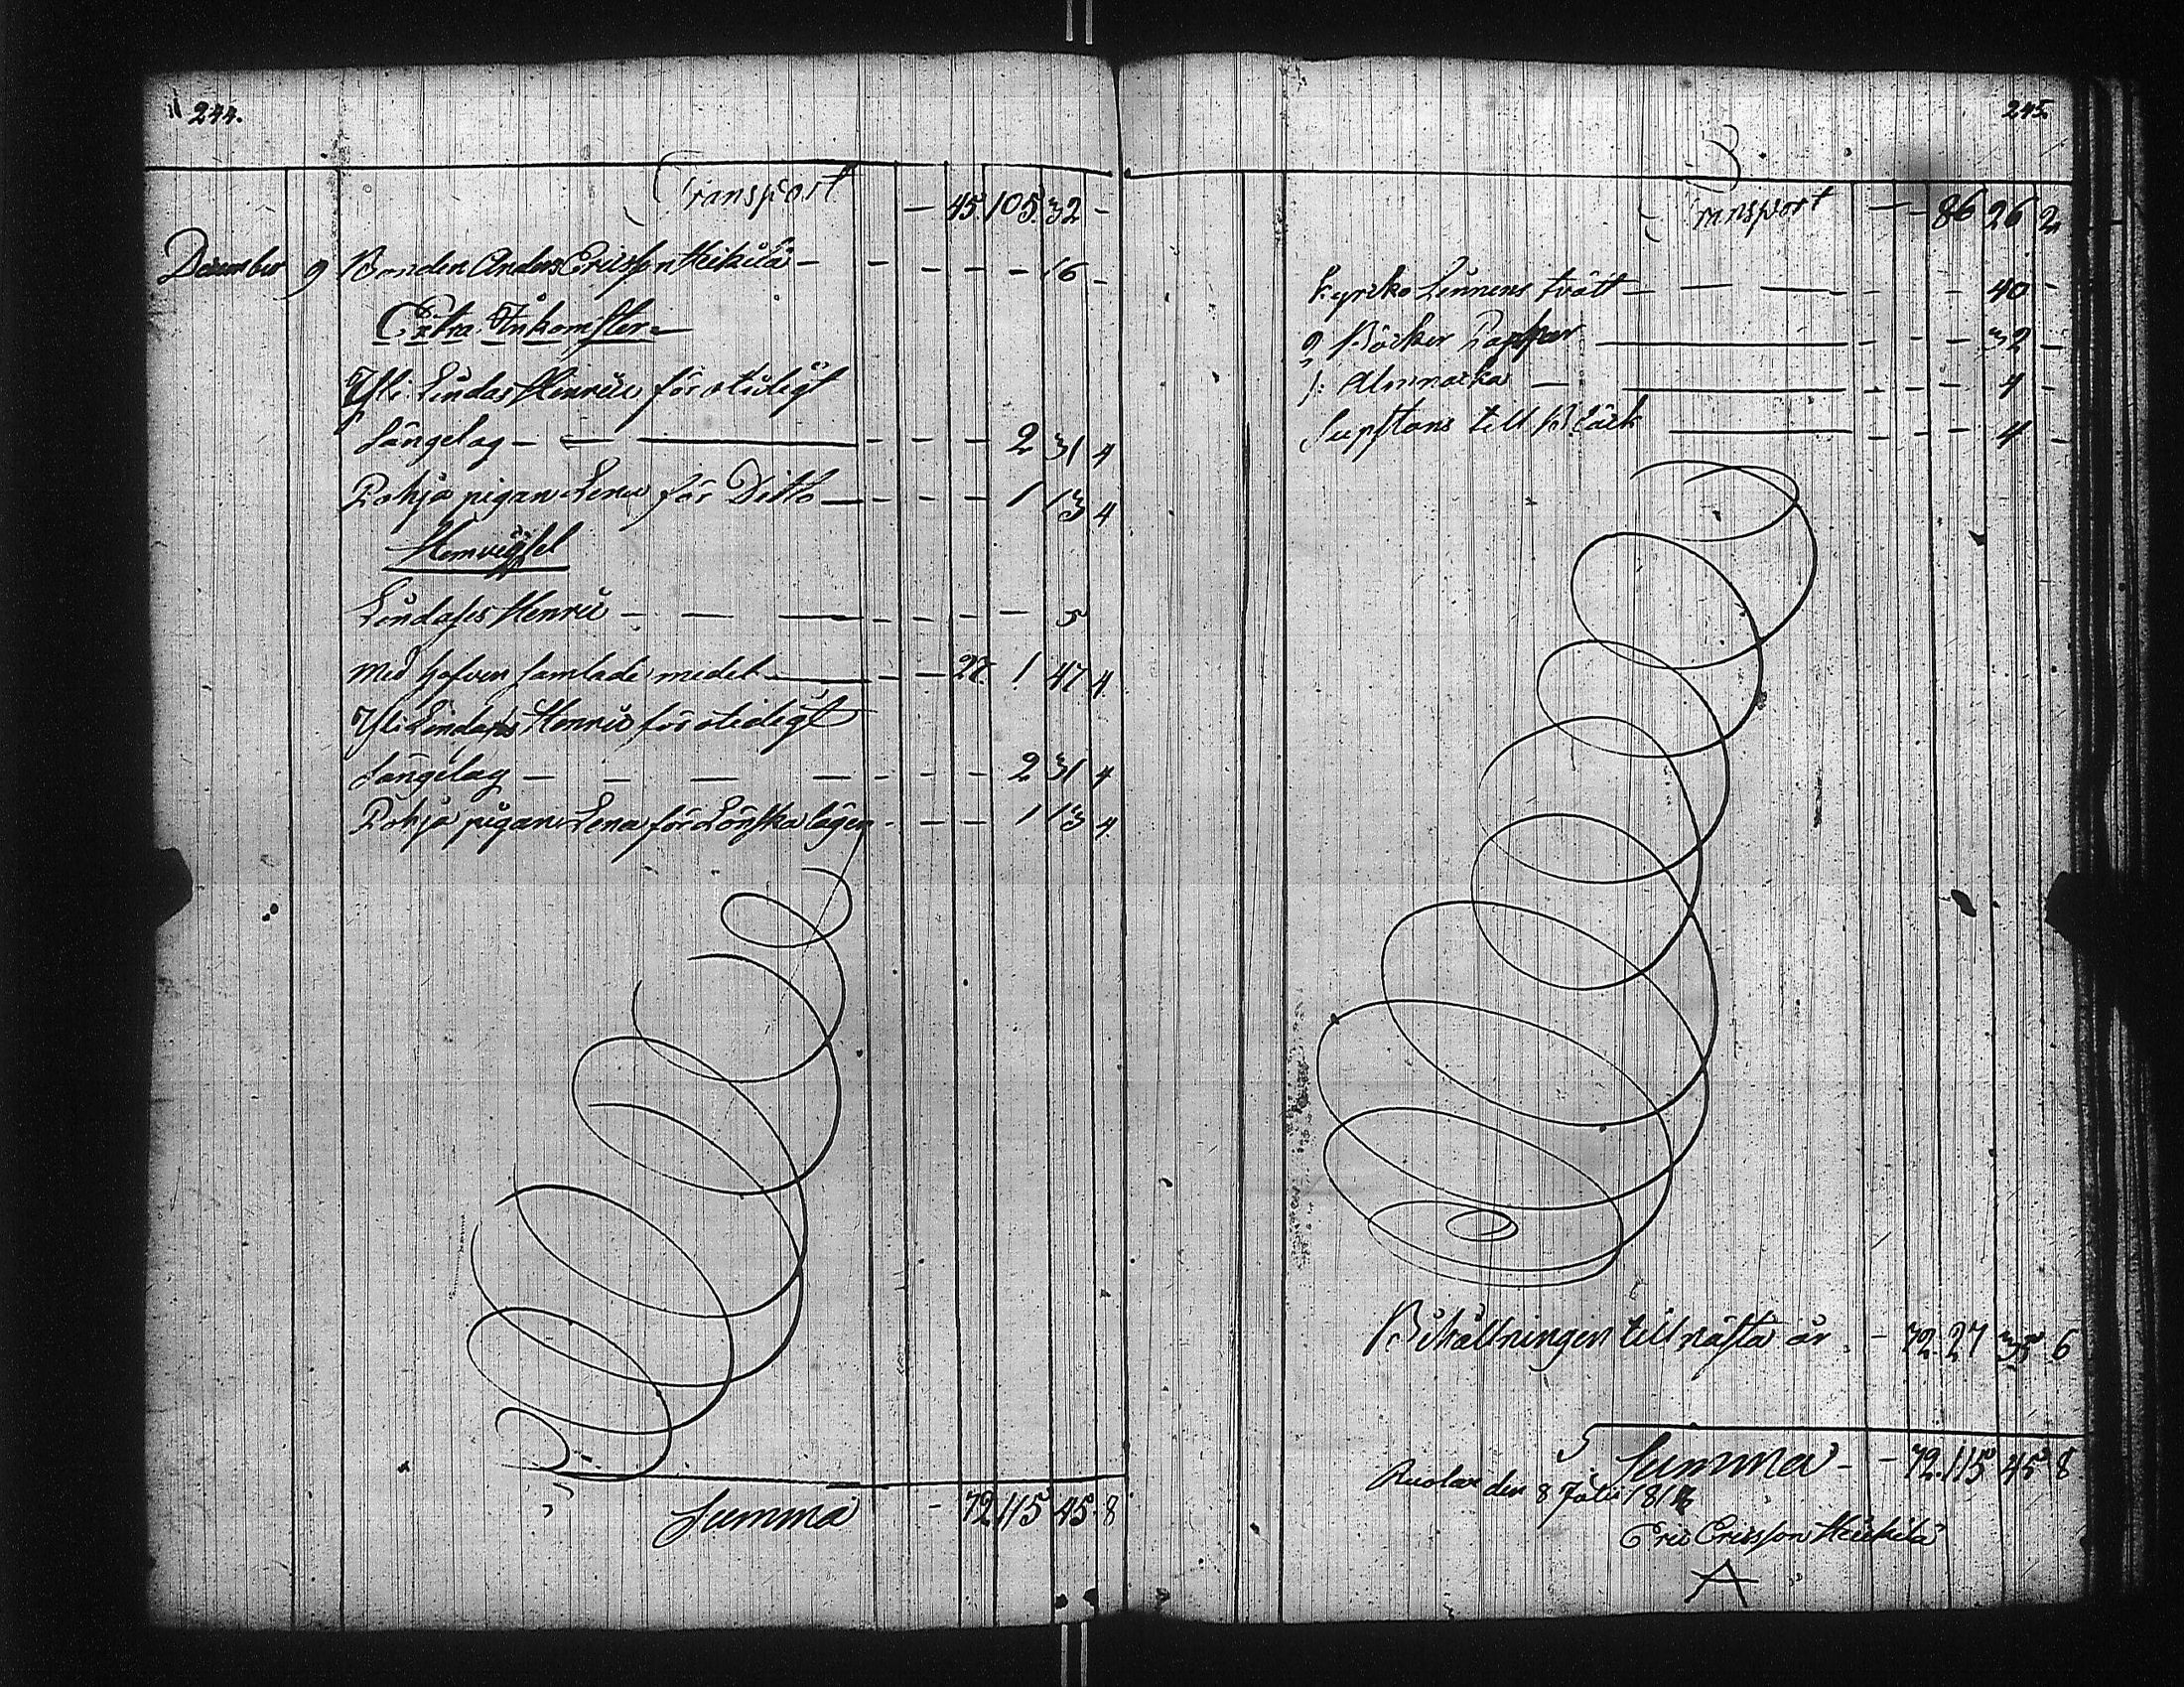 244.
Transport — 45 105. 32 -
December 9 Bonden Anders Ericsson Heikilä - - - - - 16 -
Extra Inkomster
Yli Lindas Henric för otidigt
Sängelag - - - - 2 31 4
Pohja pigan Lena för Ditto - - - 1 13 4
Hemvigsel
Lindases Henric - - - - - 5
med hofven samlade medel - - 27 1 47 4
Yli Lindas Henric för otidigt
Sängelag - - - - 2 31 4
Pohja pigan Lena för Lönska lägen - - - 1 13 4
Summa - 72 115 45. 8
245.
Transport - - 86 26 2
Kyrcko Linnens tvätt - - - - 40 -
2 Böcker Papper - - - 32 -
1: Almnacka - - - - 4 -
till Bläck - - - 4 -
Behållningen till nästa år - 72. 27 35 6
Summa - - 72. 115 45 8
den 8 181
Eric Ericsson Heickilä
A